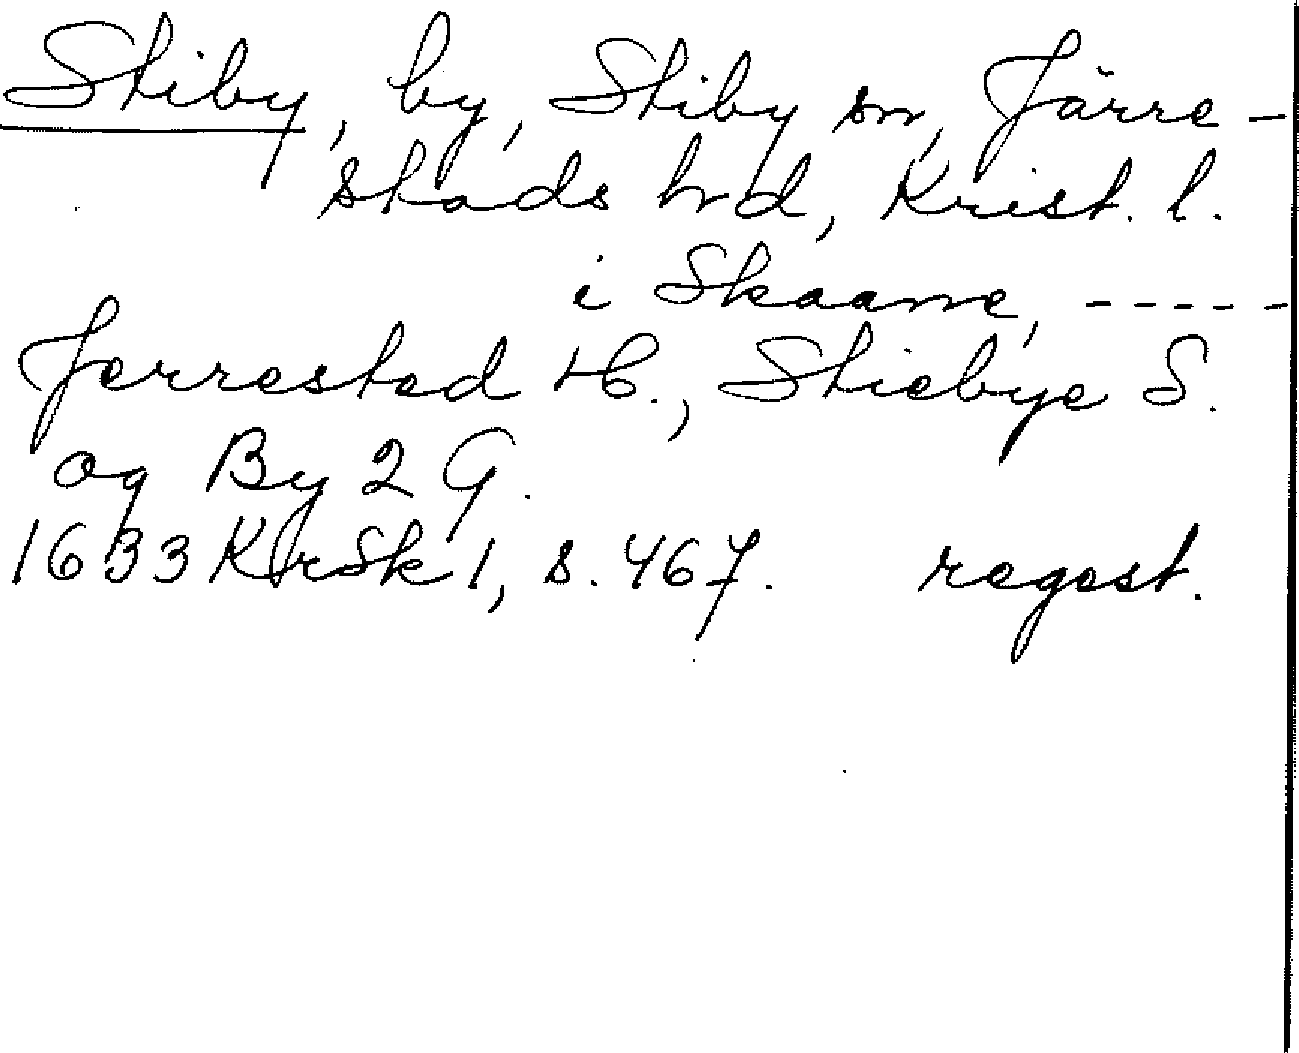 Stiby, by, Stiby sn, Järre-
stads hrd, Krist. l.
i Skaane, -----
Jerrested H., Stiebye S.
og By 2 G.
1633 KrSk 1, s. 467. regest.